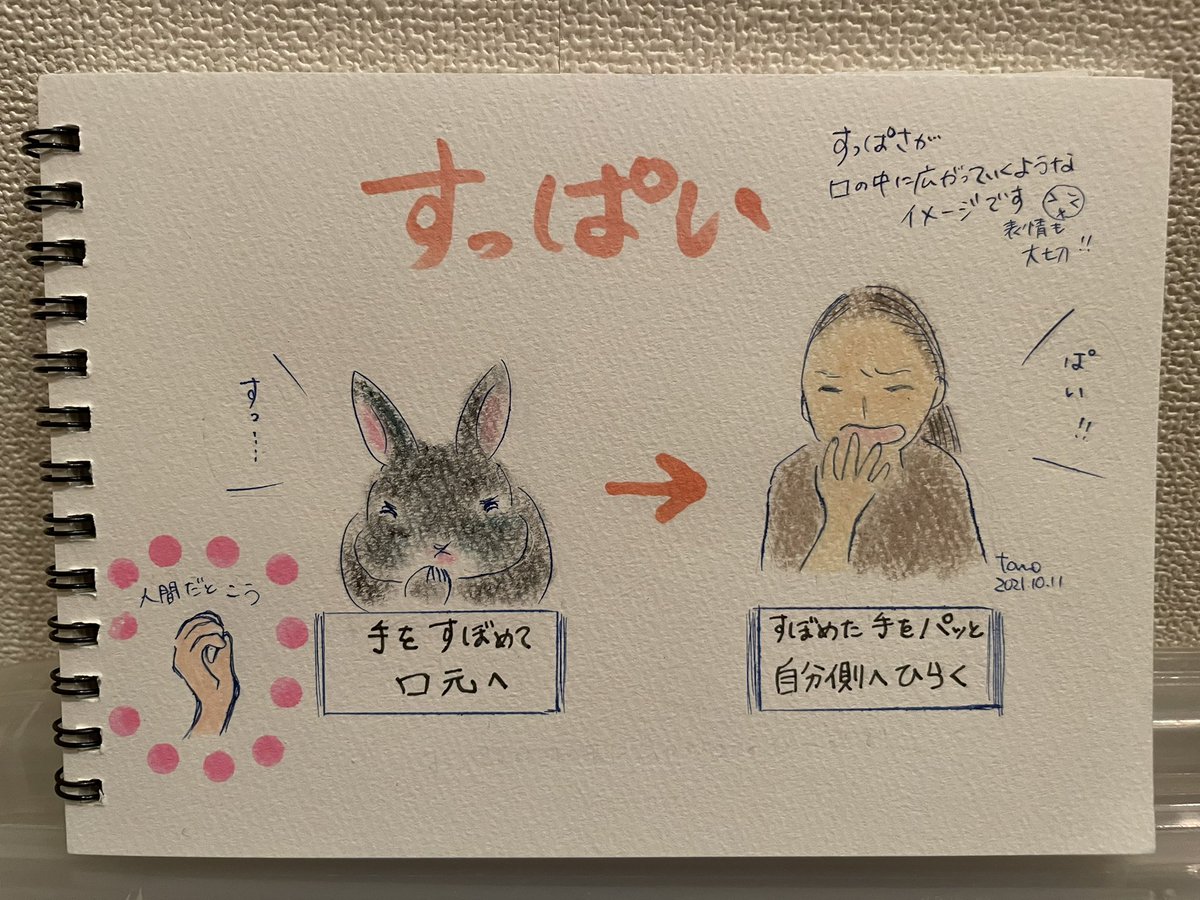 すっぱい
すっぱさが…
口の中に広がっていくような
イメージです
表情も
大切!!
すっ……
ぱい!!
人間だと こう
手をすぼめて
口元へ
すぼめた手をパッと
自分側へひらく
tano
2021.10.11